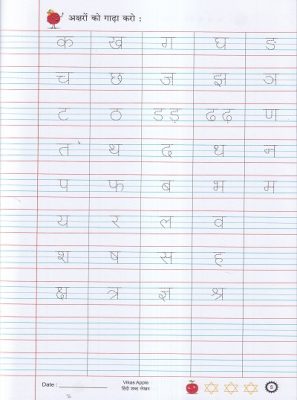 अक्षरों को गाढ़ा करो :
क ख ग घ ङ
च छ ज झ ञ
ट ठ ड ड़ ढ ढ़ ण
त थ द ध न
प फ ब भ म
य र ल व
श ष स ह
क्ष त्र ज्ञ श्र
Date :
Vikas Apple
हिंदी शब्द लेखन